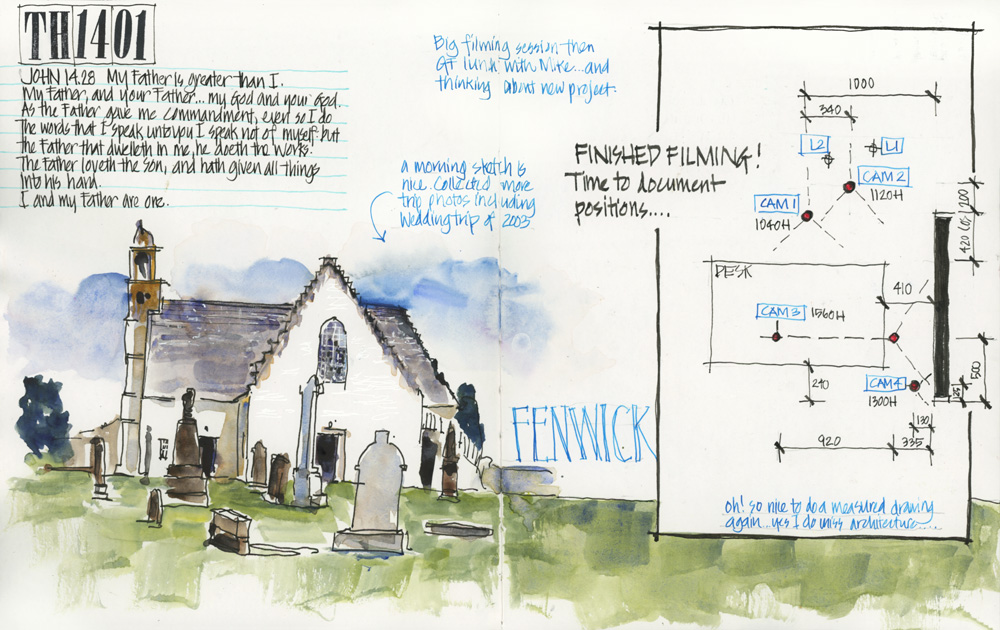 TH 14 01
JOHN 14.28 My Father is greater than I.
My Father, and your Father... my God and your God.
As the Father gave me commandment, even so I do
The words that I speak unto you I speak not of myself: but
the Father that dwelleth in me, he doeth the works.
The Father loveth the Son, and hath given all things
into his hand.
I and my Father are one.
Big filming session then
at lunch with Mike...and
thinking about new project.
a morning sketch is
nice. Collected more
trip photos including
Wedding trip of 2003
FENWICK
FINISHED FILMING!
Time to document
positions....
1000
340
L2
L1
CAM 2
1120H
CAM 1
1040H
200
420
DESK
410
CAM 3
1560H
CAM 4
1300H
240
500
125
130
920
335
oh! so nice to do a measured drawing
again...yes I do miss architecture.....